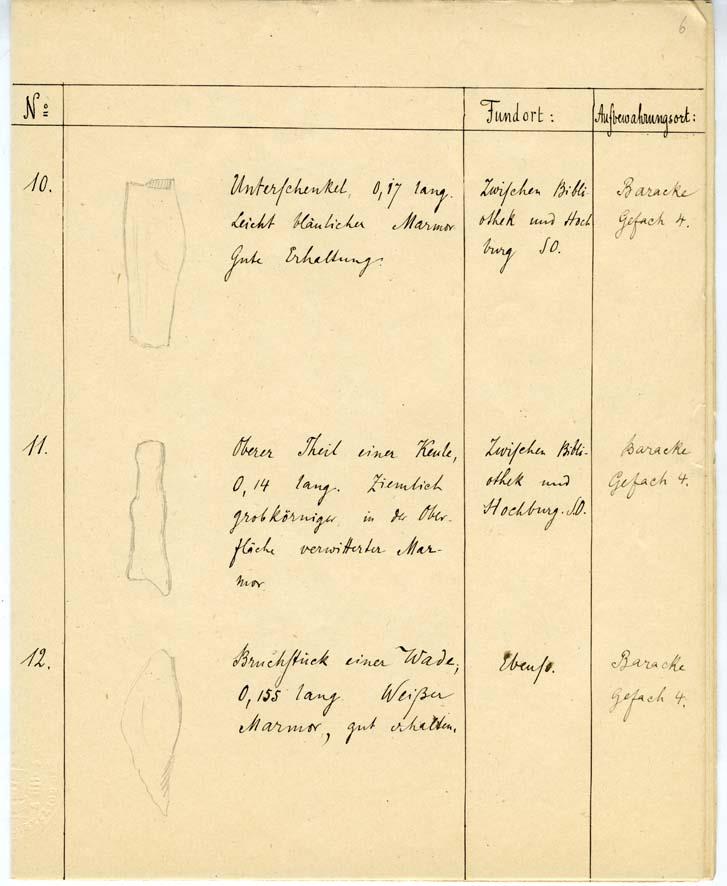 6
No Fundort: Aufbewahrungsort:
10. Unterschenkel, 0,17 lang. Zwischen Bibli- Baracke
Leicht bläulicher Marmor othek und Hoch Gefach 4.
Gute Erhaltung. burg SO.
11. Oberer Theil einer Keule, Zwischen Bibli- Baracke
0,14 lang. Ziemlich othek und Gefach 4.
grobkörniger, in der Ober- Hochburg. SO.
fläche verwitterter Mar-
mor
12. Bruchstück einer Wade, Ebenso. Baracke
0,155 lang. Weißer Gefach 4.
Marmor, gut erhalten.